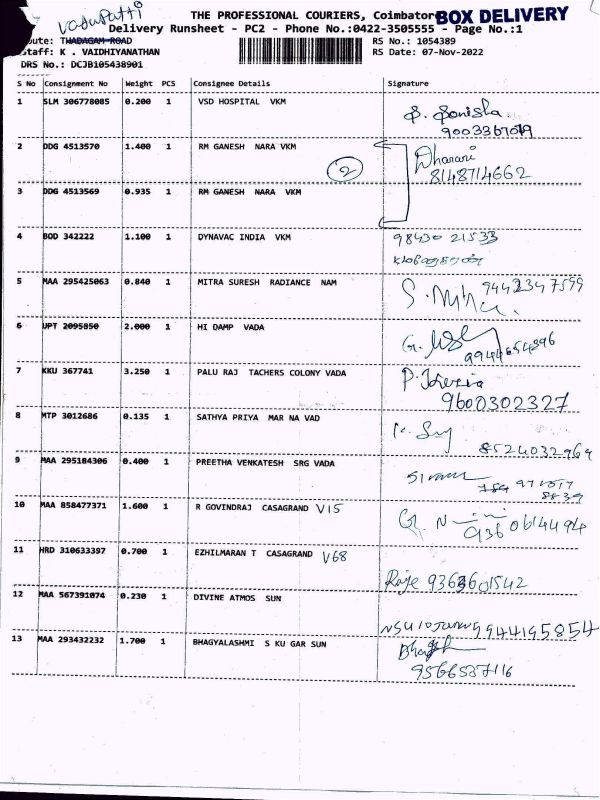 Vadupatti
THE PROFESSIONAL COURIERS, Coimbatore
BOX DELIVERY
Delivery Runsheet - PC2 - Phone No.:0422-3505555 - Page No.:1
Route: THADAGAM ROAD
RS No.: 1054389
Staff: K . VAIDHIYANATHAN
RS Date: 07-Nov-2022
DRS No.: DCJB105438901
S No Consignment No Weight PCS Consignee Details Signature
1 SLM 306778085 0.200 1 VSD HOSPITAL VKM
9003367019
2 DDG 4513570 1.400 1 RM GANESH NARA VKM Dharani
2 8148714662
3 DDG 4513569 0.935 1 RM GANESH NARA VKM
4 BOD 342222 1.100 1 DYNAVAC INDIA VKM 98430 21533
5 MAA 295425063 0.840 1 MITRA SURESH RADIANCE NAM 9442347599
6 UPT 2095850 2.000 1 HI DAMP VADA
9944654396
7 KKU 367741 3.250 1 PALU RAJ TACHERS COLONY VADA
9600302327
8 MTP 3012686 0.135 1 SATHYA PRIYA MAR NA VAD
8524032969
9 MAA 295184306 0.400 1 PREETHA VENKATESH SRG VADA
10 MAA 858477371 1.600 1 R GOVINDRAJ CASAGRAND V15
936 0614494
11 HRD 310633397 0.700 1 EZHILMARAN T CASAGRAND V68
Raje 9363601542
12 MAA 567391074 0.230 1 DIVINE ATMOS SUN
9944195854
13 MAA 293432232 1.700 1 BHAGYALASHMI S KU GAR SUN
9566537116